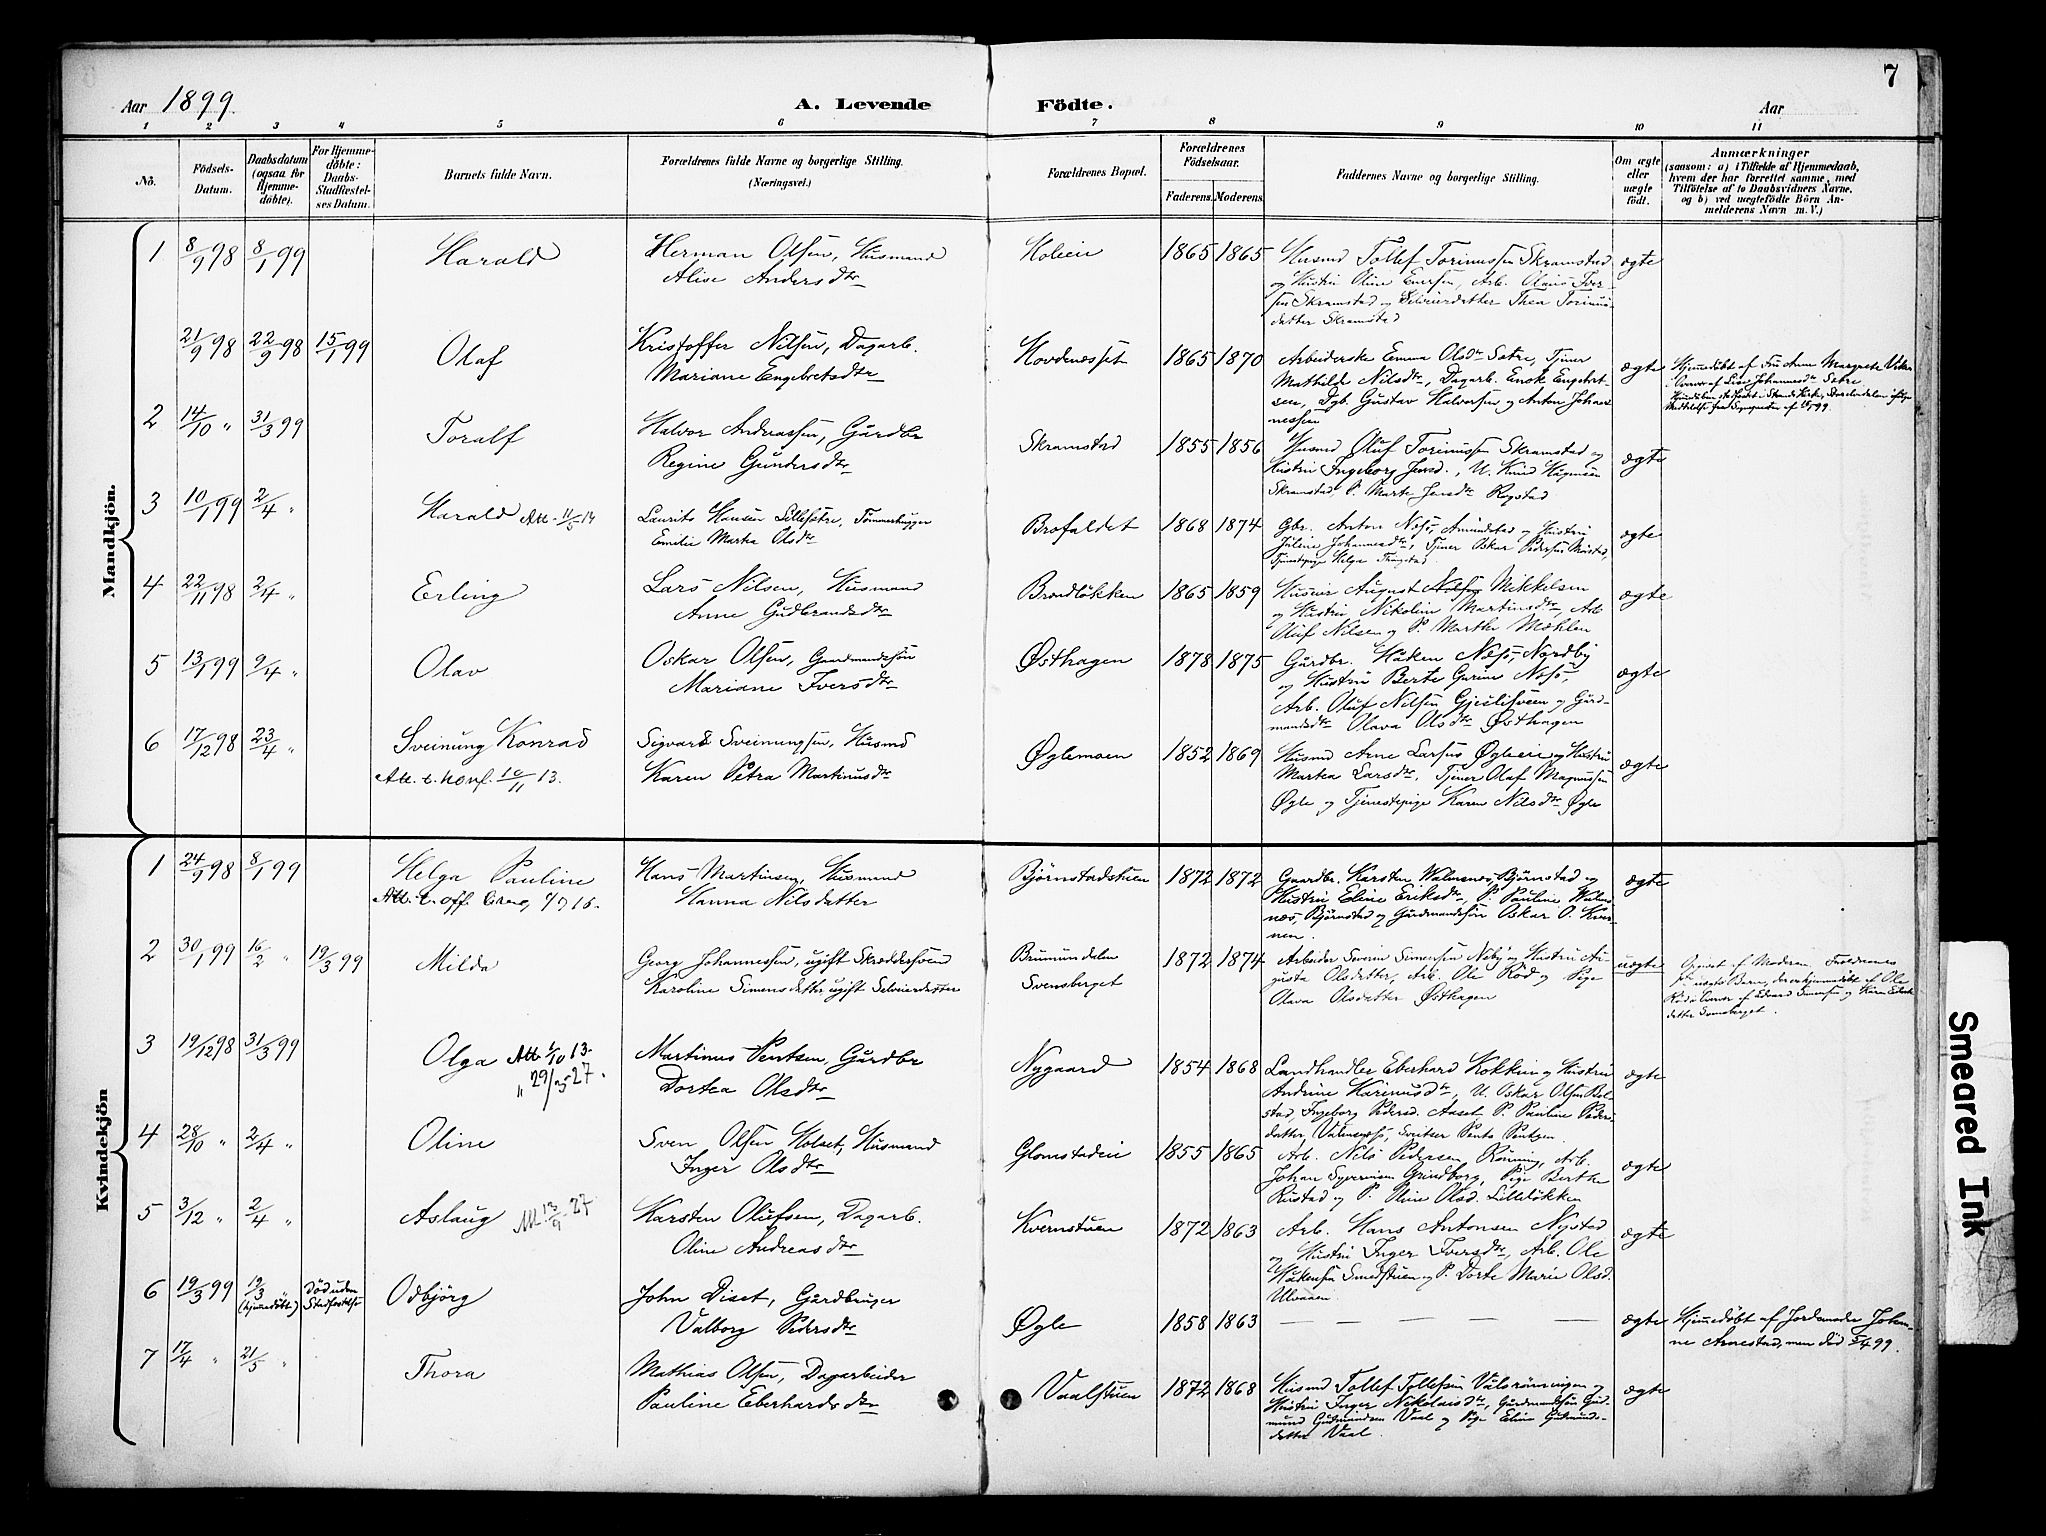 7
Aar 1899. A. Levende Födte. Aar
1 2 3 4 5 6 7 8 9 10 11
No.
Födsels-
Datum.
Daabsdatum
(ogsaa for
Hjemme-
døbte).
For Hjemme-
døbte:
Daabs-
Stadfæstel-
ses Datum.
Barnets fulde Navn.
Forældrenes fulde Navne og borgerlige Stilling.
(Næringsvei.)
Forældrenes Bopæl.
Forældrenes
Fødselsaar.
Faderens. Moderens.
Faddernes Navne og borgerlige Stilling.
Om ægte
eller
uægte
födt.
Anmærkninger
(saasom: a) i Tilfælde af Hjemmedaab,
hvem der har forrettet samme, med
Tilföielse af to Daabsvidners Navne,
og b) ved uægtefödte Börn An-
melderens Navn m. V.)
Mandkjön.
1 8/9 98 8/1 99 Harald
Herman Olsen, Husmand
Alise Andersdtr
Holeie 1865 1865
Husmd Tollef Torinussen Skramstad
og Hustru Oline Enersen, Arb. Olaus Iver-
sen Skramstad og Selveierdatter Thea Torinus-
datter Skramstad
ægte
21/9 98 22/9 98 15/1 99 Olaf
Kristoffer Nilsen, Dagarb.
Mariane Engebretsdtr
Hovdenesset 1865 1870
Arbeiderske Emma Olsdtr Sætre, Tjener
Mathilde Nilsdtr, Dagarb. Enok Engebret-
sen, Dgb. Gustav Halvorsen og Anton Johan-
nessen
ægte
Hjemmedøbt af Fru Anne Margrete
2 14/10 " 31/3 99 Toralf
Halvor Andreassen, Gårdbr
Regine Gundersdtr
Skramstad 1855 1856
Husmd Oluf Torinussen Skramstad og
Hustru Ingeborg Jensd., U. Knud Magnusen
Skramstad, P. Marte Jensdtr Rogstad
ægte
3 10/1 99 2/4 " Harald Att. 11/5 14
Laurits Hansen Lillesetre, Tømmerhugger
Emilie Marka Olsdtr
Brofaldet 1868 1874
Gbr. Anton Næss, Amundstad og Hustru
Juline Johannesdtr, Tjener Oskar Pedersen
Tjenestepige Helga
ægte
4 22/11 98 2/4 " Erling
Lars Nilsen, Husmand
Anne Gudbrandsdtr
Brændløkken 1865 1859
Huseier August Nilsen Mikkelsen
og Hustru Nikoline Martinsdtr, Arb.
Oluf Nilsen og P. Marthe Mæhlen
ægte
5 13/1 99 9/4 " Olav
Oskar Olsen, Gaardmandssøn
Mariane Iversdtr
Østhagen 1878 1875
Gårdbr. Håken Næss, Nordby
og Hustru Berte Gurine Næss,
Arb. Oluf Nilsen Gjeslisveen og Gård-
mandsdtr Olava Olsdtr Østhagen
ægte
6 17/12 98 23/4 " Sveinung Konrad
Att. t. konf. 10/11 13.
Sigvard Sveinungsen, Husmd
Karen Petra Martinusdtr
Øglemoen 1852 1869
Husmd Arne Larsen Øgleeie og Hustru
Martea Larsdtr, Tjener Olaf Magnussen
Øgle og Tjenestepige Karen Nilsdtr Øgle
ægte
Kvindekjön
1 24/9 98 8/1 99 Helga Pauline
Hans Martinsen, Husmand
Hanna Nilsdatter
Bjørnstadstuen 1872 1872
Gaardbr. Karsten Walmsnæs, Bjørnstad og
Hustru Eline Eriksdtr, P. Pauline Walms-
næs, Bjørnstad og Gårdmandssøn Oskar O. Kver-
nen.
ægte
2 30/1 99 16/2 " 19/3 99 Milda
Georg Johannessen, ugift Skræddersvend
Karoline Simensdatter, ugift Selveierdatter
Brumunddalen
Svensberget
1872 1874
Arbeider Severin Simensen Neby og Hustru Au-
gusta Olsdatter, Arb. Ole Rød og Pige
Olava Olsdatter Østhagen
uægte
Opgivet af Moderen. Forældrenes
1ste uægte Barn, der er hjemmedøbt af Ole
Rød i Overvær af Edvard Simensen og Karen
datter Svensberget.
3 19/12 98 31/3 99 Olga Att. 1/10 13.
" 29/5 27.
Martinus Pentsen, Gårdbr
Dortea Olsdtr
Nygaard 1854 1868
Landhandler Eberhard Kokkin og Hustru
Andrine Karinusdtr, U. Oskar Olsen Bol-
stad, Ingeborg Pedersd. Aaset, P. Pauline Peders-
datter Valmsnæs,
ægte
4 28/10 " 2/4 " Oline
Sven Olsen Holset, Husmand
Inger Olsdtr
Glomstadeie 1855 1865
Arb. Nils Pedersen Rønning, Arb.
Johan Syverinsen Grindborg, Pige Berthe
Rustad og P. Oline Olsd. Lilleløkken
ægte
5 3/12 " 2/4 " Aslaug Att 13/9 27
Karsten Olufsen, Dagarb.
Oline Andreasdtr
Kvernstuen 1872 1863
Arb. Hans Antonsen Nystad
og Hustru Inger Iversdtr, Arb. Ole
Håkensen Smedstuen og P. Dorte Marie Olsd.
Ulvaaen.
ægte
6 19/3 99 19/3 " (hjemmedøbt) Död uden Stadfestelse Odbjörg
John Diset, Gårdbruger
Valborg Pedersdtr
Øgle 1858 1863 — — — — — — ægte
Hjemmedøbt af Jordemoder Johan-
ne Arnestad, men död 5/4 99.
7 17/4 " 21/5 " Thora
Mathias Olsen, Dagarbeider
Pauline Eberhardsdtr
Vaalstuen 1872 1868
Husmd Tollef Tollefsen Vålsrønningen og
Hustru Inger Nikolaisdtr, Gårdmandssøn Gud-
mund Gudmundsen Vaal og Pige Elin Gudmunds-
datter Vaal.
ægte
Smeared Ink